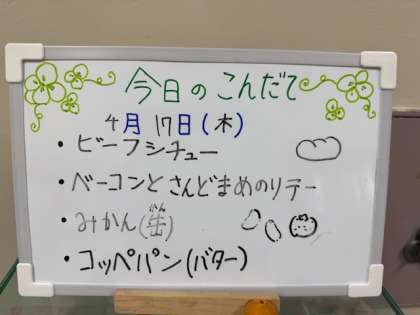 今日のこんだて
4月17日(木)
・ビーフシチュー
・ベーコンとさんどまめのソテー
・みかん(缶)
かん
・コッペパン(バター)